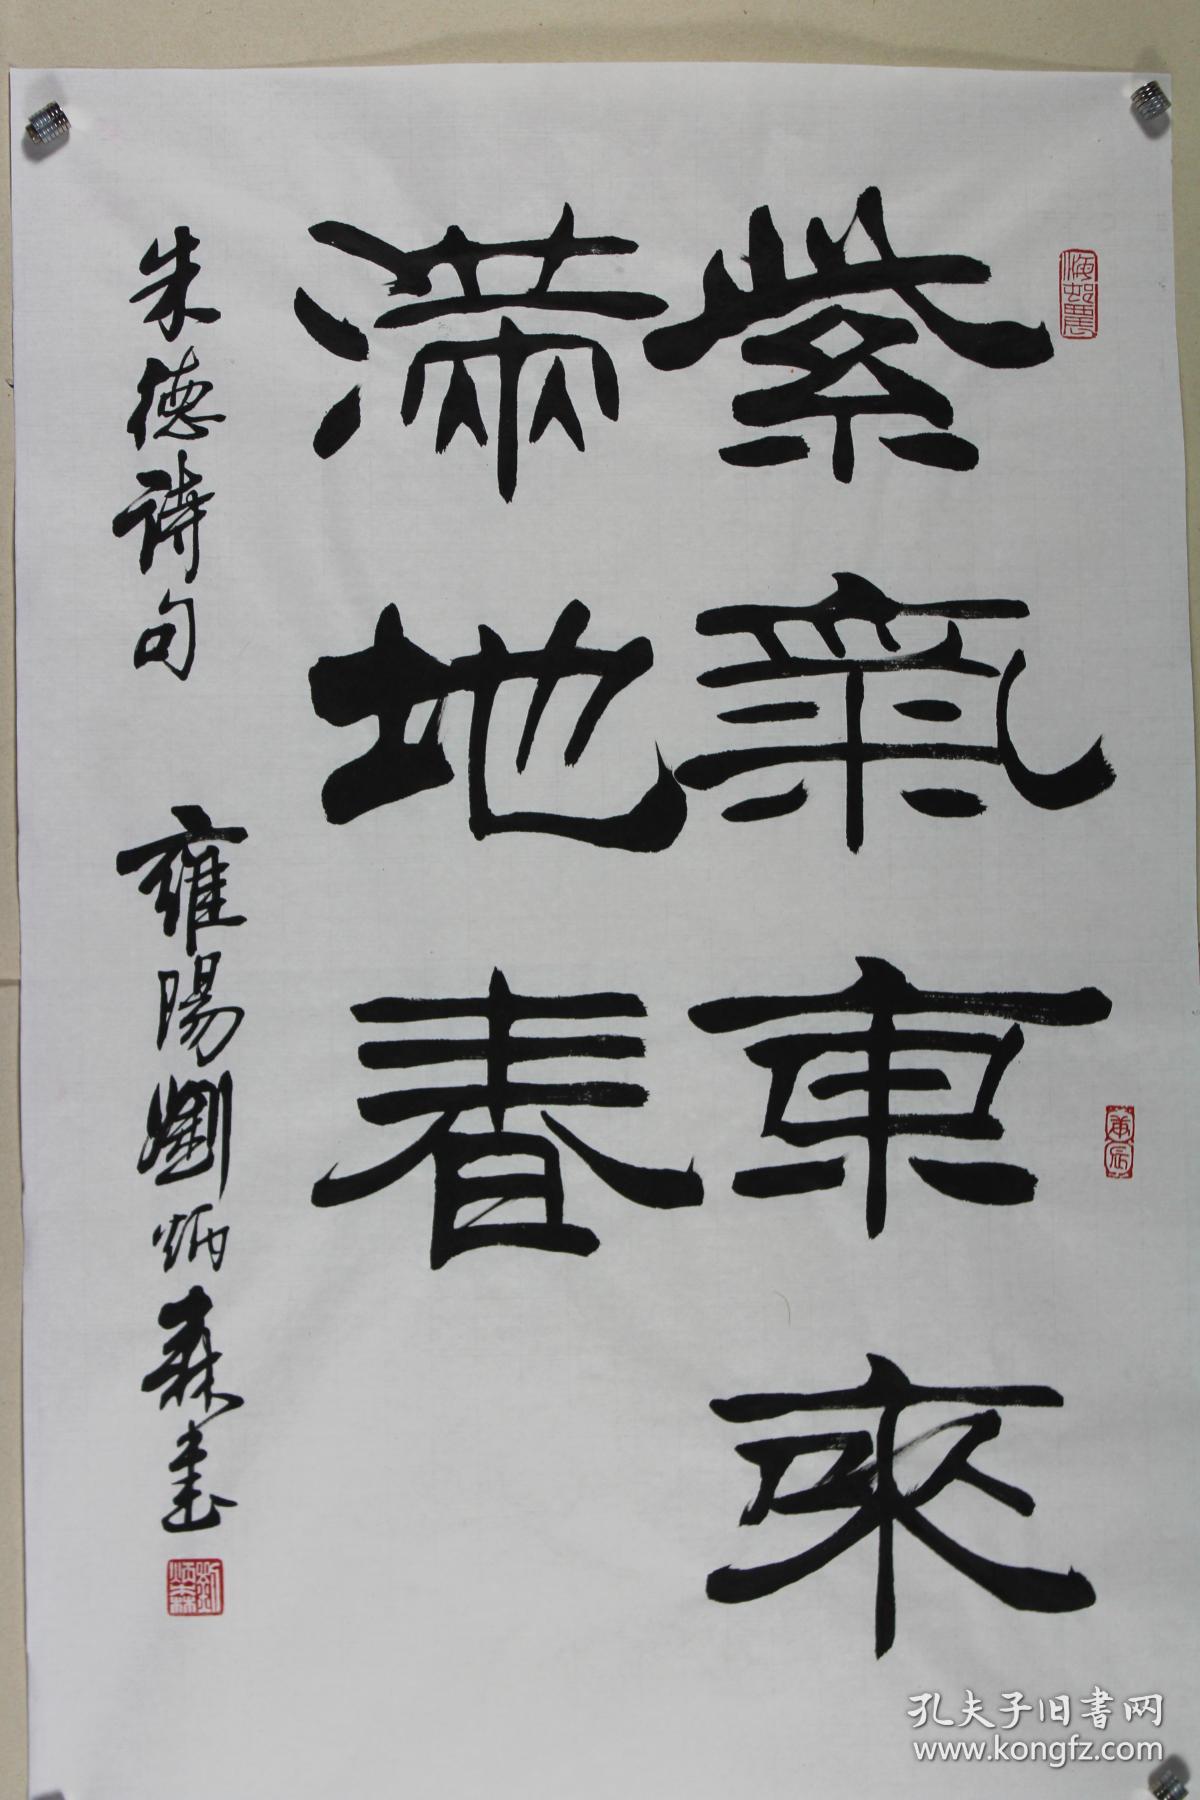 紫氣東來
滿地春
朱德詩句 雍陽劉炳森書
海邨農
庚辰
劉炳森
孔夫子旧书网
www.kongfz.com